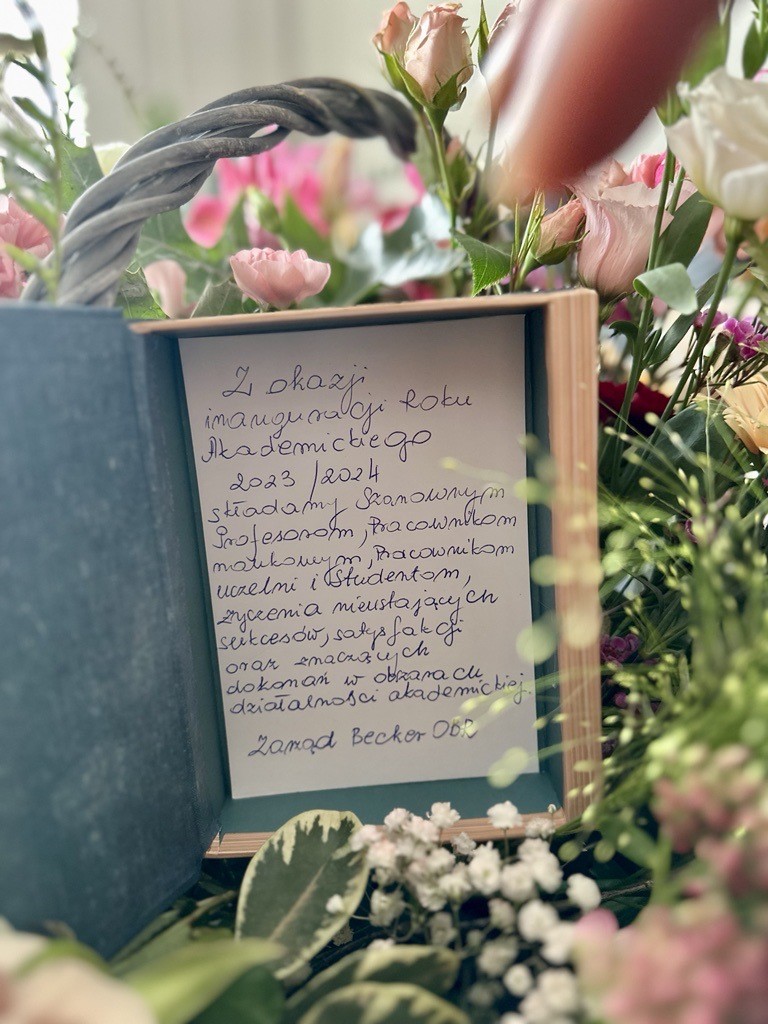 Z okazji
inauguracji Roku
Akademickiego
2023/2024
składamy Szanownym
Profesorom, Pracownikom
naukowym, Pracownikom
uczelni i Studentom,
życzenia nieustających
sukcesów, satysfakcji
oraz znaczących
dokonań w obszarach
działalności akademickiej.
Zarząd Becker OBR